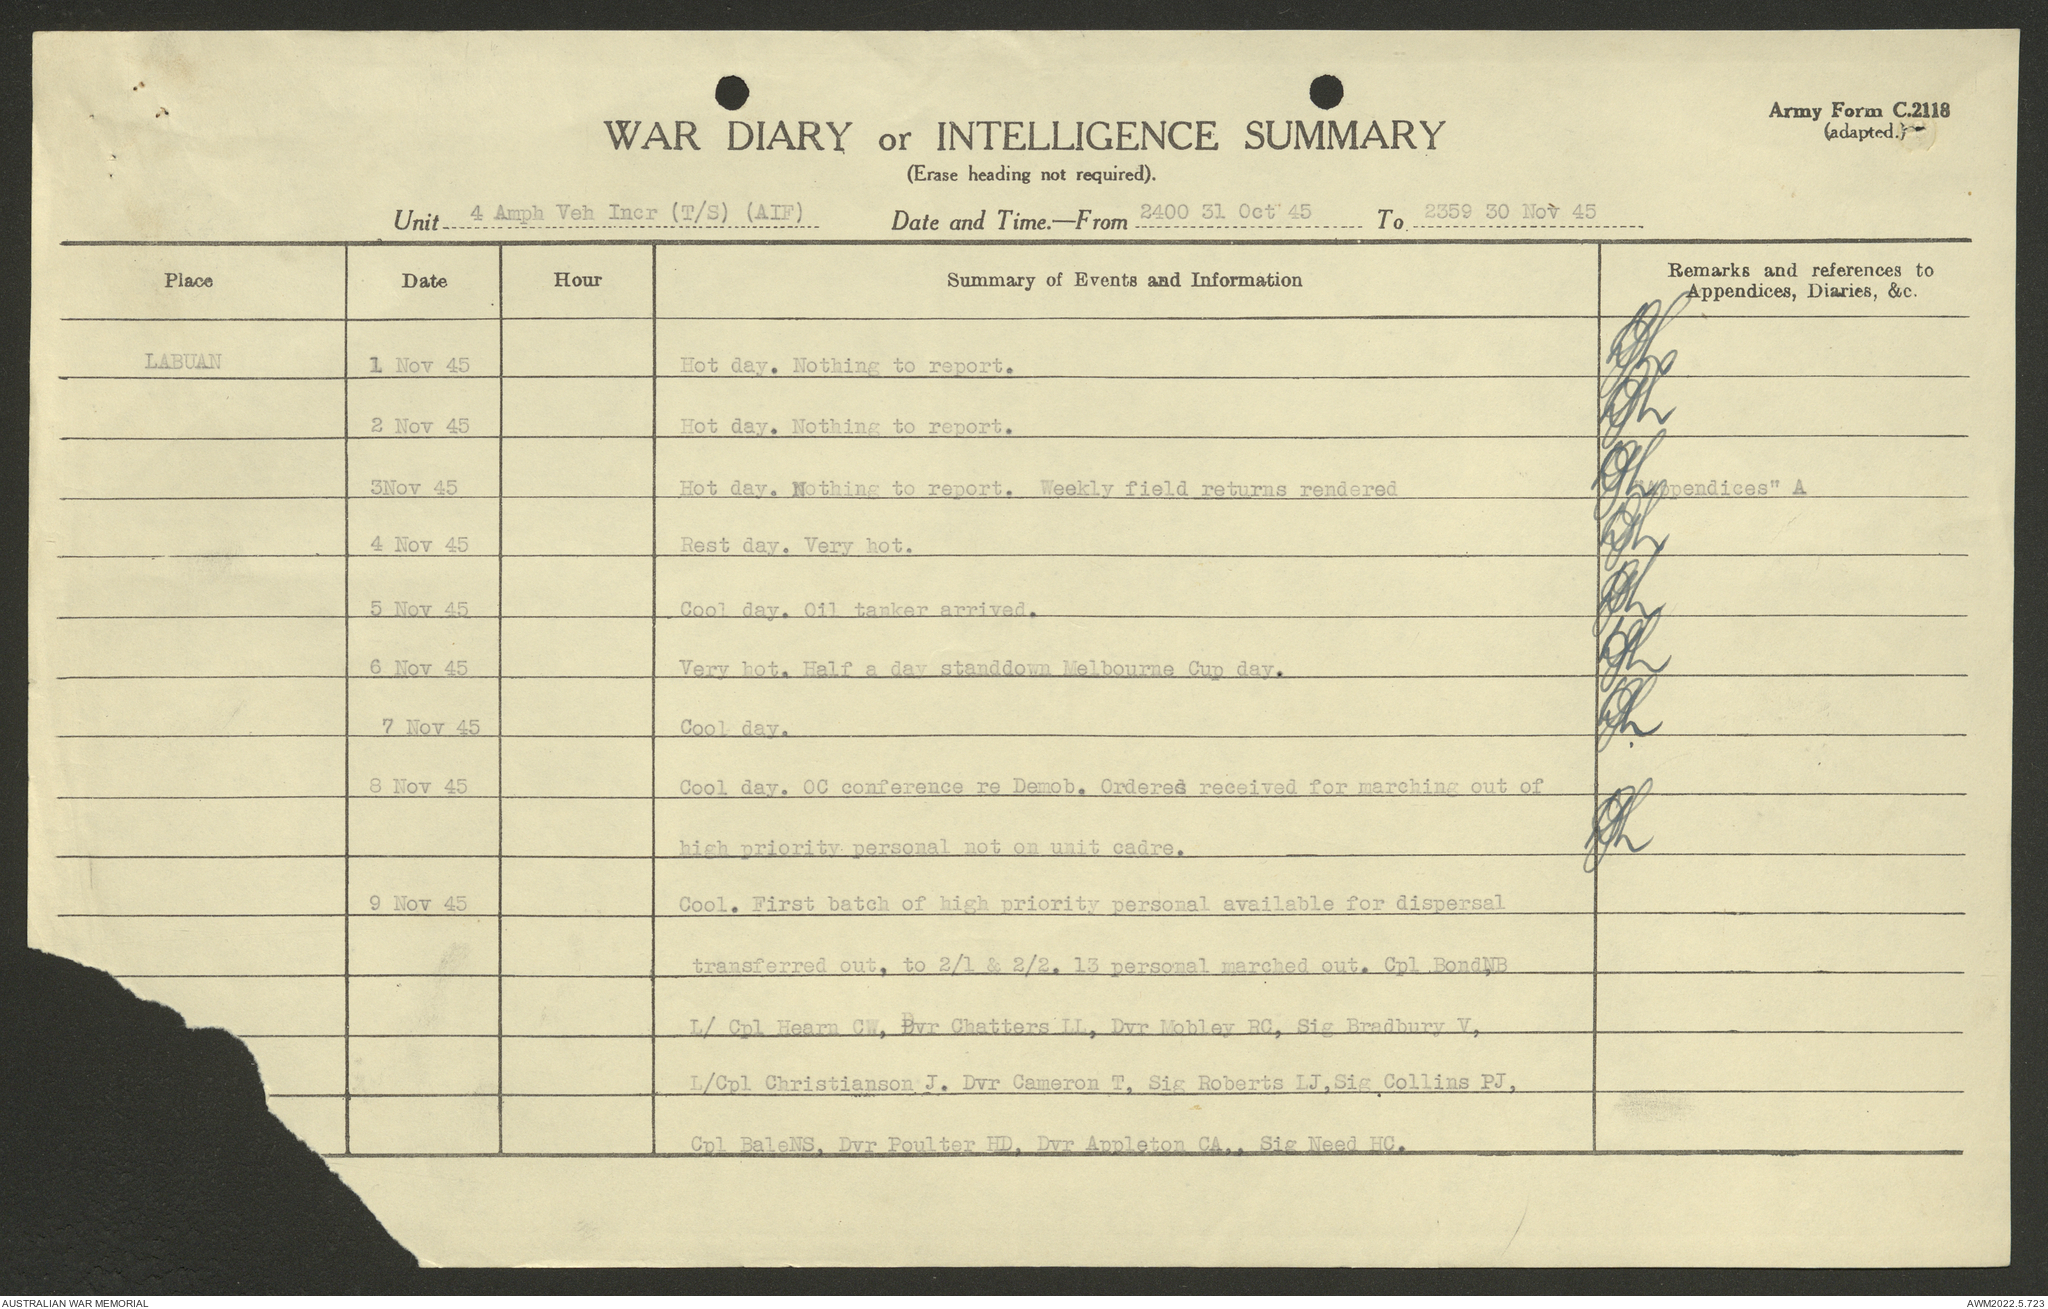 Army Form C.2118
(adapted.)
WAR DIARY or INTELLIGENCE SUMMARY
(Erase heading not required).
Unit 4 Amph Veh Incr (T/S) (AIF) Date and Time.—From 2400 31 Oct 45 To 2359 30 Nov 45
Place Date Hour Summary of Events and Information Remarks and references to
Appendices, Diaries, &c.
LABUAN 1 Nov 45 Hot day. Nothing to report.
2 Nov 45 Hot day. Nothing to report.
3Nov 45 Hot day. Nothing to report. Weekly field returns rendered "Appendices" A
4 Nov 45 Rest day. Very hot.
5 Nov 45 Cool day. Oil tanker arrived.
6 Nov 45 Very hot. Half a day standdown Melbourne Cup day.
7 Nov 45 Cool day.
8 Nov 45 Cool day. OC conference re Demob. Orderes received for marching out of
high priority personal not on unit cadre.
9 Nov 45 Cool. First batch of high priority personal available for dispersal
transferred out, to 2/1 & 2/2. 13 personal marched out. Cpl BondNB
L/ Cpl Hearn CW, Dvr Chatters LL, Dvr Mobley RC, Sig Bradbury V,
L/Cpl Christianson J. Dvr Cameron T, Sig Roberts LJ,Sig Collins PJ,
Cpl BaleNS, Dvr Poulter HD, Dvr Appleton CA,, Sig Need HC.
AUSTRALIAN WAR MEMORIAL
AWM2022.5.723